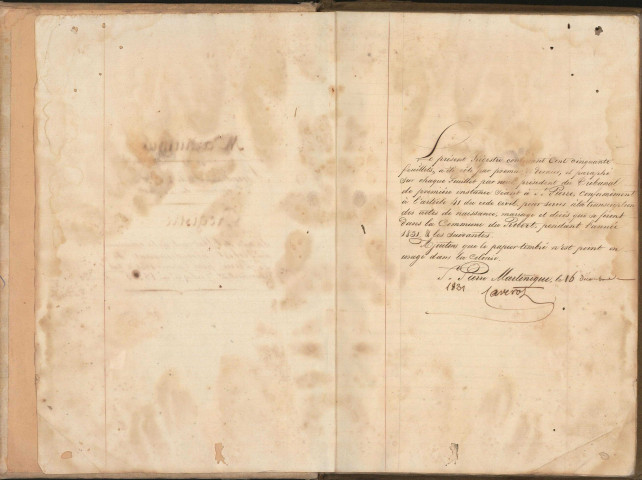 Le présent Registre contenant Cent cinquante
feuillets, a été coté par première et dernière, et paraphé
sur chaque feuillet par nous président du Tribunal
de première instance séant à St Pierre, conformément
à l'article 41 du code civil, pour servir à la transcription
des actes de naissance, mariage et décès qui se feront
dans la Commune du Robert, pendant l'année
1831, & les suivantes.
que le papier timbré n'est point en
usage dans la Colonie.
St Pierre Martinique, le 16
1831